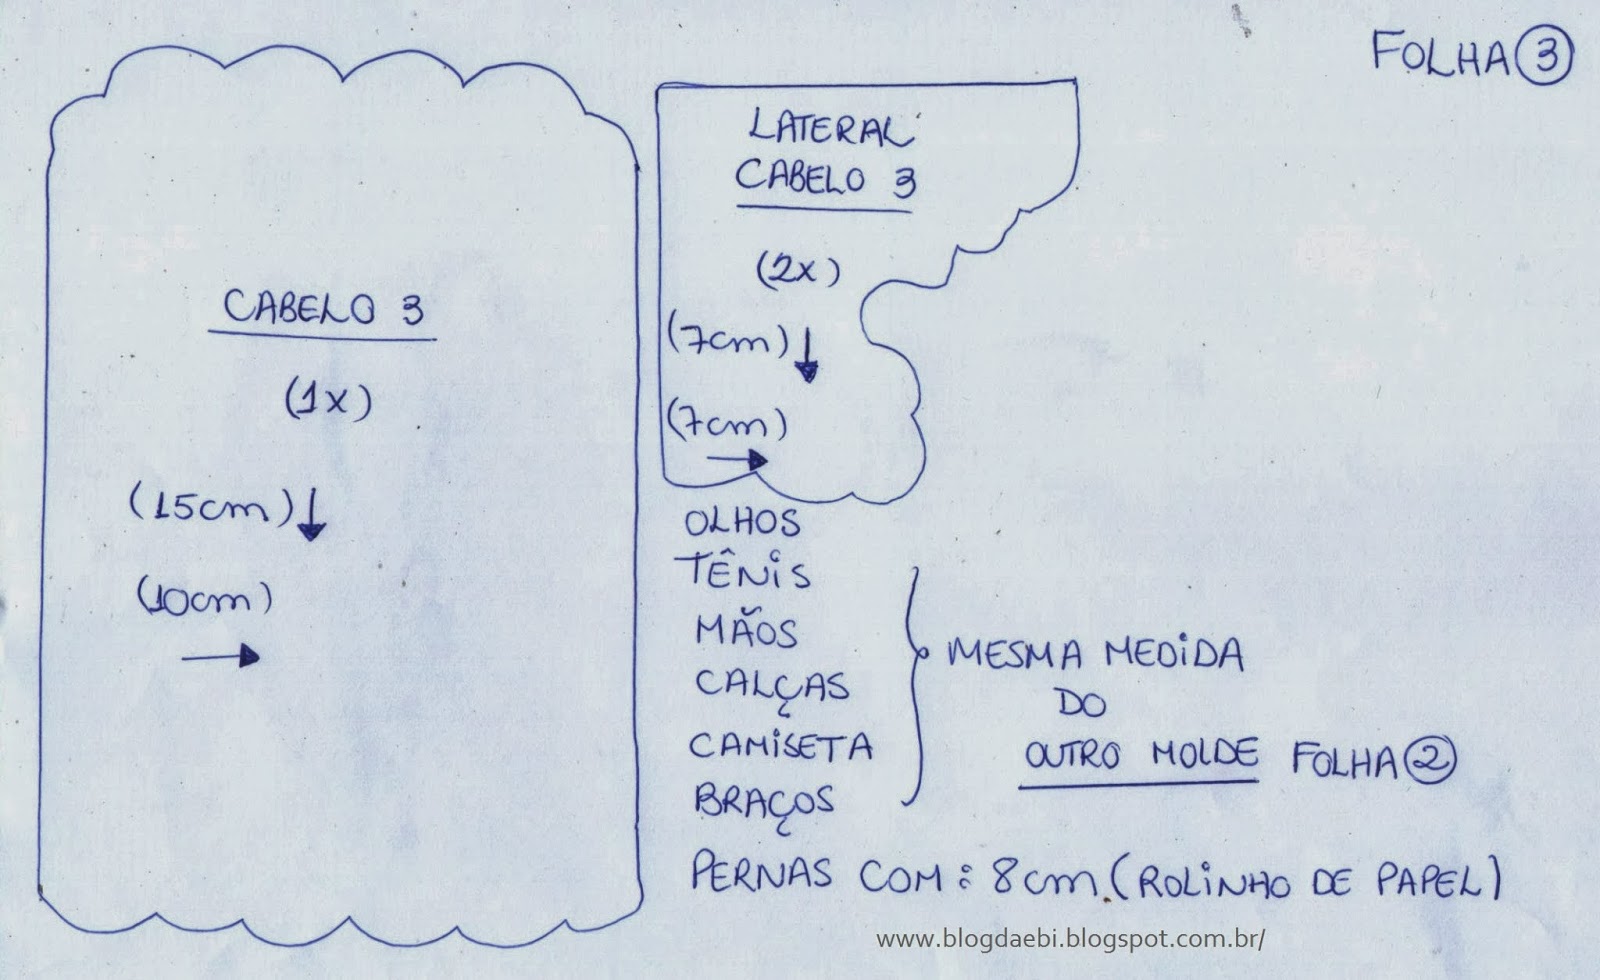 FOLHA 3
CABELO 3
(1x)
(15cm)
(10cm)
LATERAL
CABELO 3
(2x)
(7cm)
(7cm)
OLHOS
TÊNIS
MÃOS
CALÇAS
CAMISETA
BRAÇOS
MESMA MEDIDA
DO
OUTRO MOLDE FOLHA 2
PERNAS COM: 8cm (ROLINHO DE PAPEL)
www.blogdaebi.blogspot.com.br/